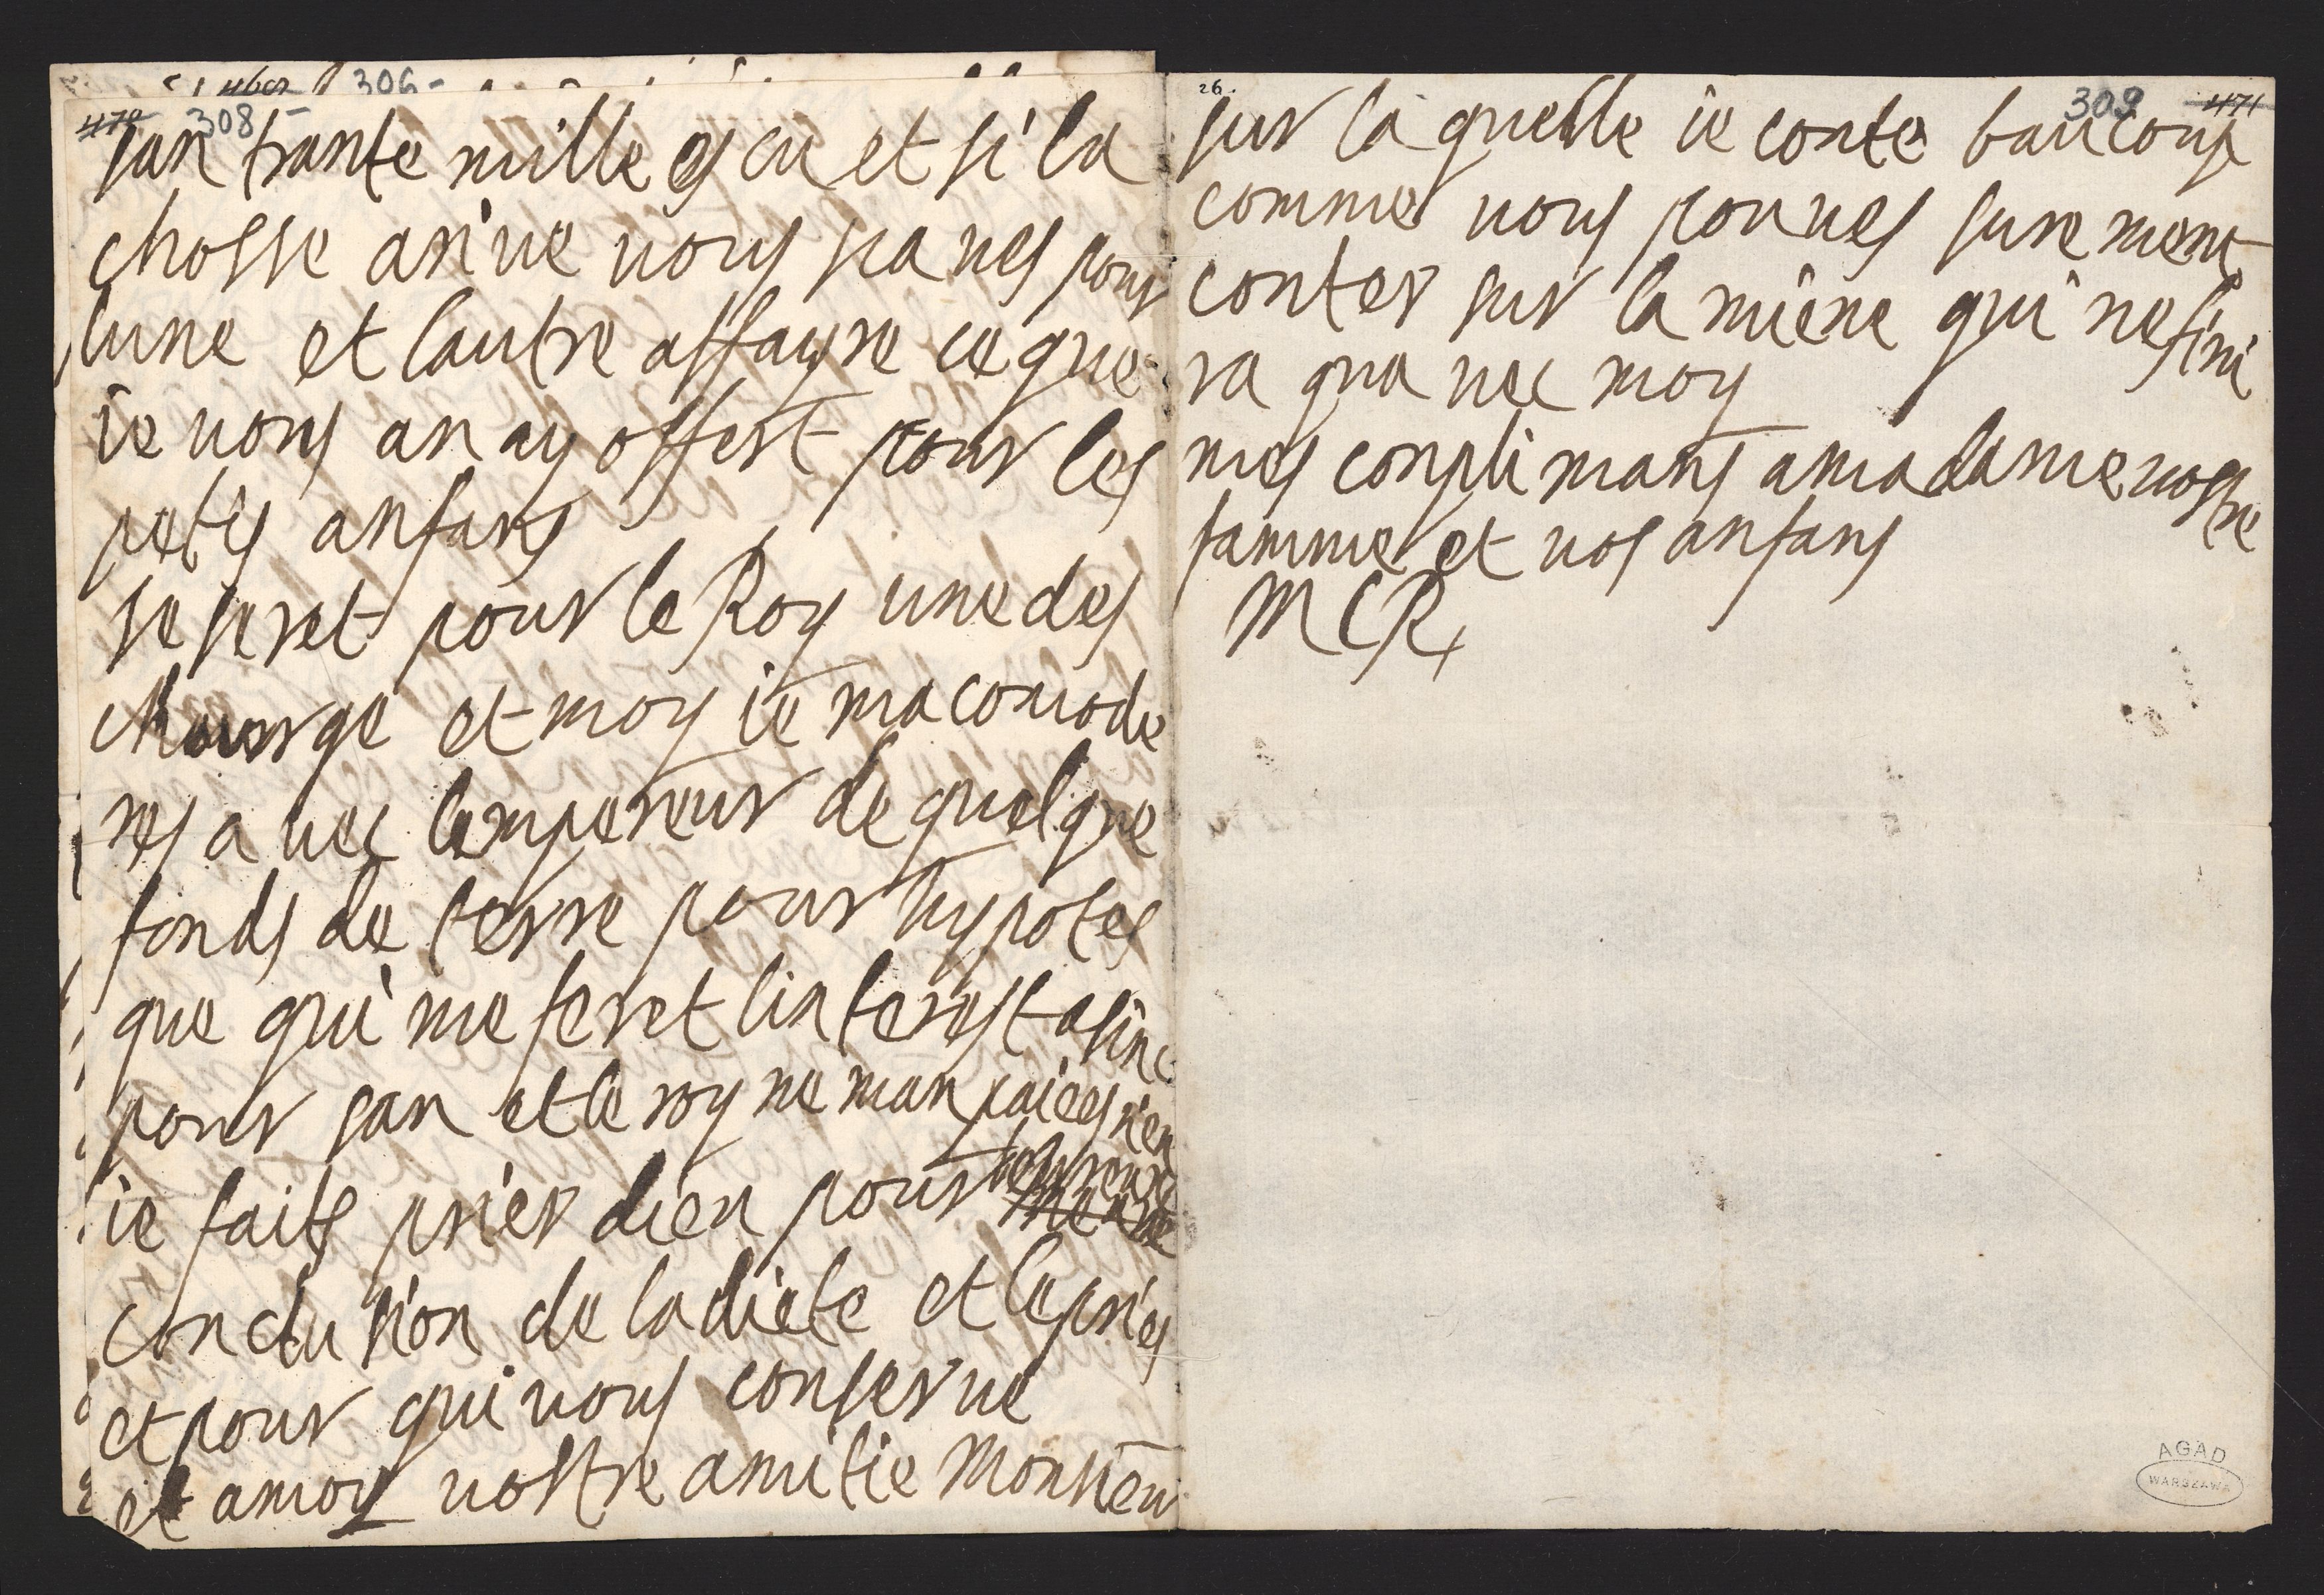 470 308 -
san trante mille escu et si la
chosse arive vous scaves pour
lune et lautre affayre ce que
ie vous an ay offert pour les
petis anfans
se seret pour le Roy une des
charge et moy ie macomode
res avec lempereur de quelque
fonds de terre pour hypotes
que qui me feret linterest a sinc
pour san et le roy ne man paieés rien
ie faits prier dieu pour
conclusion de la diete et le pries
et pour qui vous conserve
et a moy vostre amitie Monsieu
4692 306 -
26.
309 471
sur la quelle ie conte baucoup
comme vous pouves surement
conter sur la miene qui ne fini
ra qua vec moy
mes conplimans a madame vostre
famme et vos anfans
M C R
AGAD
WARSZAWA